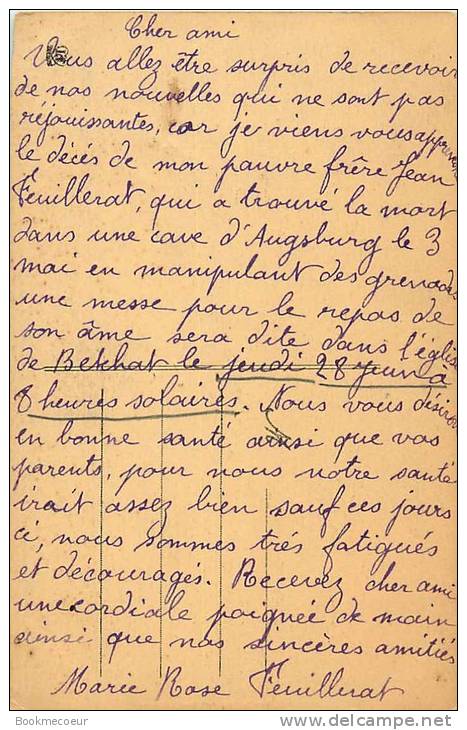 Cher ami
Vous allez être surpris de recevoir
de nos nouvelles qui ne sont pas
réjouissantes, car je viens vous apprendre
le décés de mon pauvre frère Jean
Feuillerat, qui a trouvé la mort
dans une cave d'Augsburg le 3
mai en manipulant des grenades
une messe pour le repas de
son âme sera dite dans l'église
de Betchat le jeudi 28 Juin à
8 heures solaires. Nous vous désirons
en bonne santé ainsi que vos
parents, pour nous notre santé
irait assez bien sauf ces jours
ci, nous sommes trés fatigués
et découragés. Recevez cher ami
une cordiale poignée de main
ainsi que nos sincères amitiés
Marie Rose Feuillerat
Bookmecoeur
delcampe.net